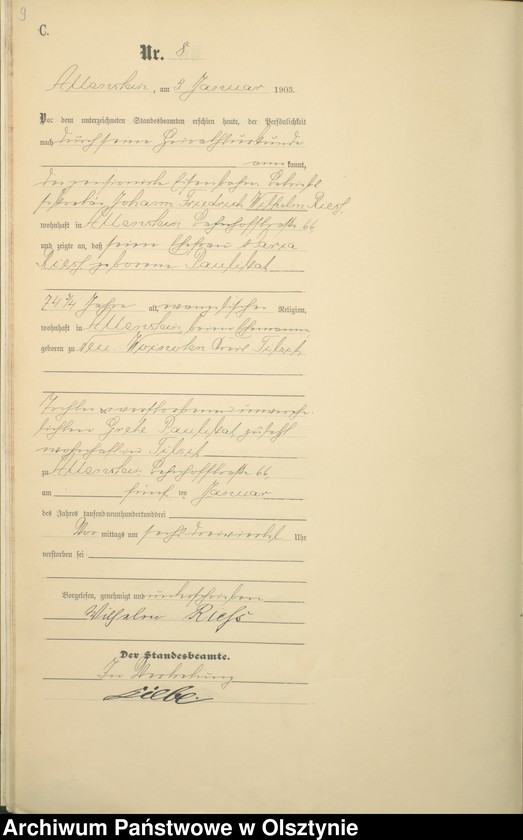 9
C.
Nr. 8
Allenstein, am 5 Januar 1903.
Vor dem unterzeichneten Standesbeamten erschien heute, der Persönlichkeit
nach durch seine Heirathsurkunde
anerkannt,
der pensionirte Eisenbahn Betriebs
sekretär Johann Friedrich Wilhelm Riess,
wohnhaft in Allenstein Bahnhofstraße 66
und zeigte an, daß seine Ehefrau Maria
Riess geborene Paulikat
74 3/4 Jahre alt, evangelischer Religion,
wohnhaft in Allenstein beim Ehemanne,
geboren zu Neu Kreis Tilsit,
Tochter verstorbenen unverehe
lichten Grete Paulikat, zuletzt
wohnhaft in Tilsit
zu Allenstein Bahnhofstraße 66,
am fünf ten Januar
des Jahres tausendneunhundertunddrei
Vor mittags um sechs dreiviertel Uhr
verstorben sei
Vorgelesen, genehmigt und unterschrieben
Wilhelm Riess
Der Standesbeamte.
In Vertretung
Archiwum Państwowe w Olsztynie